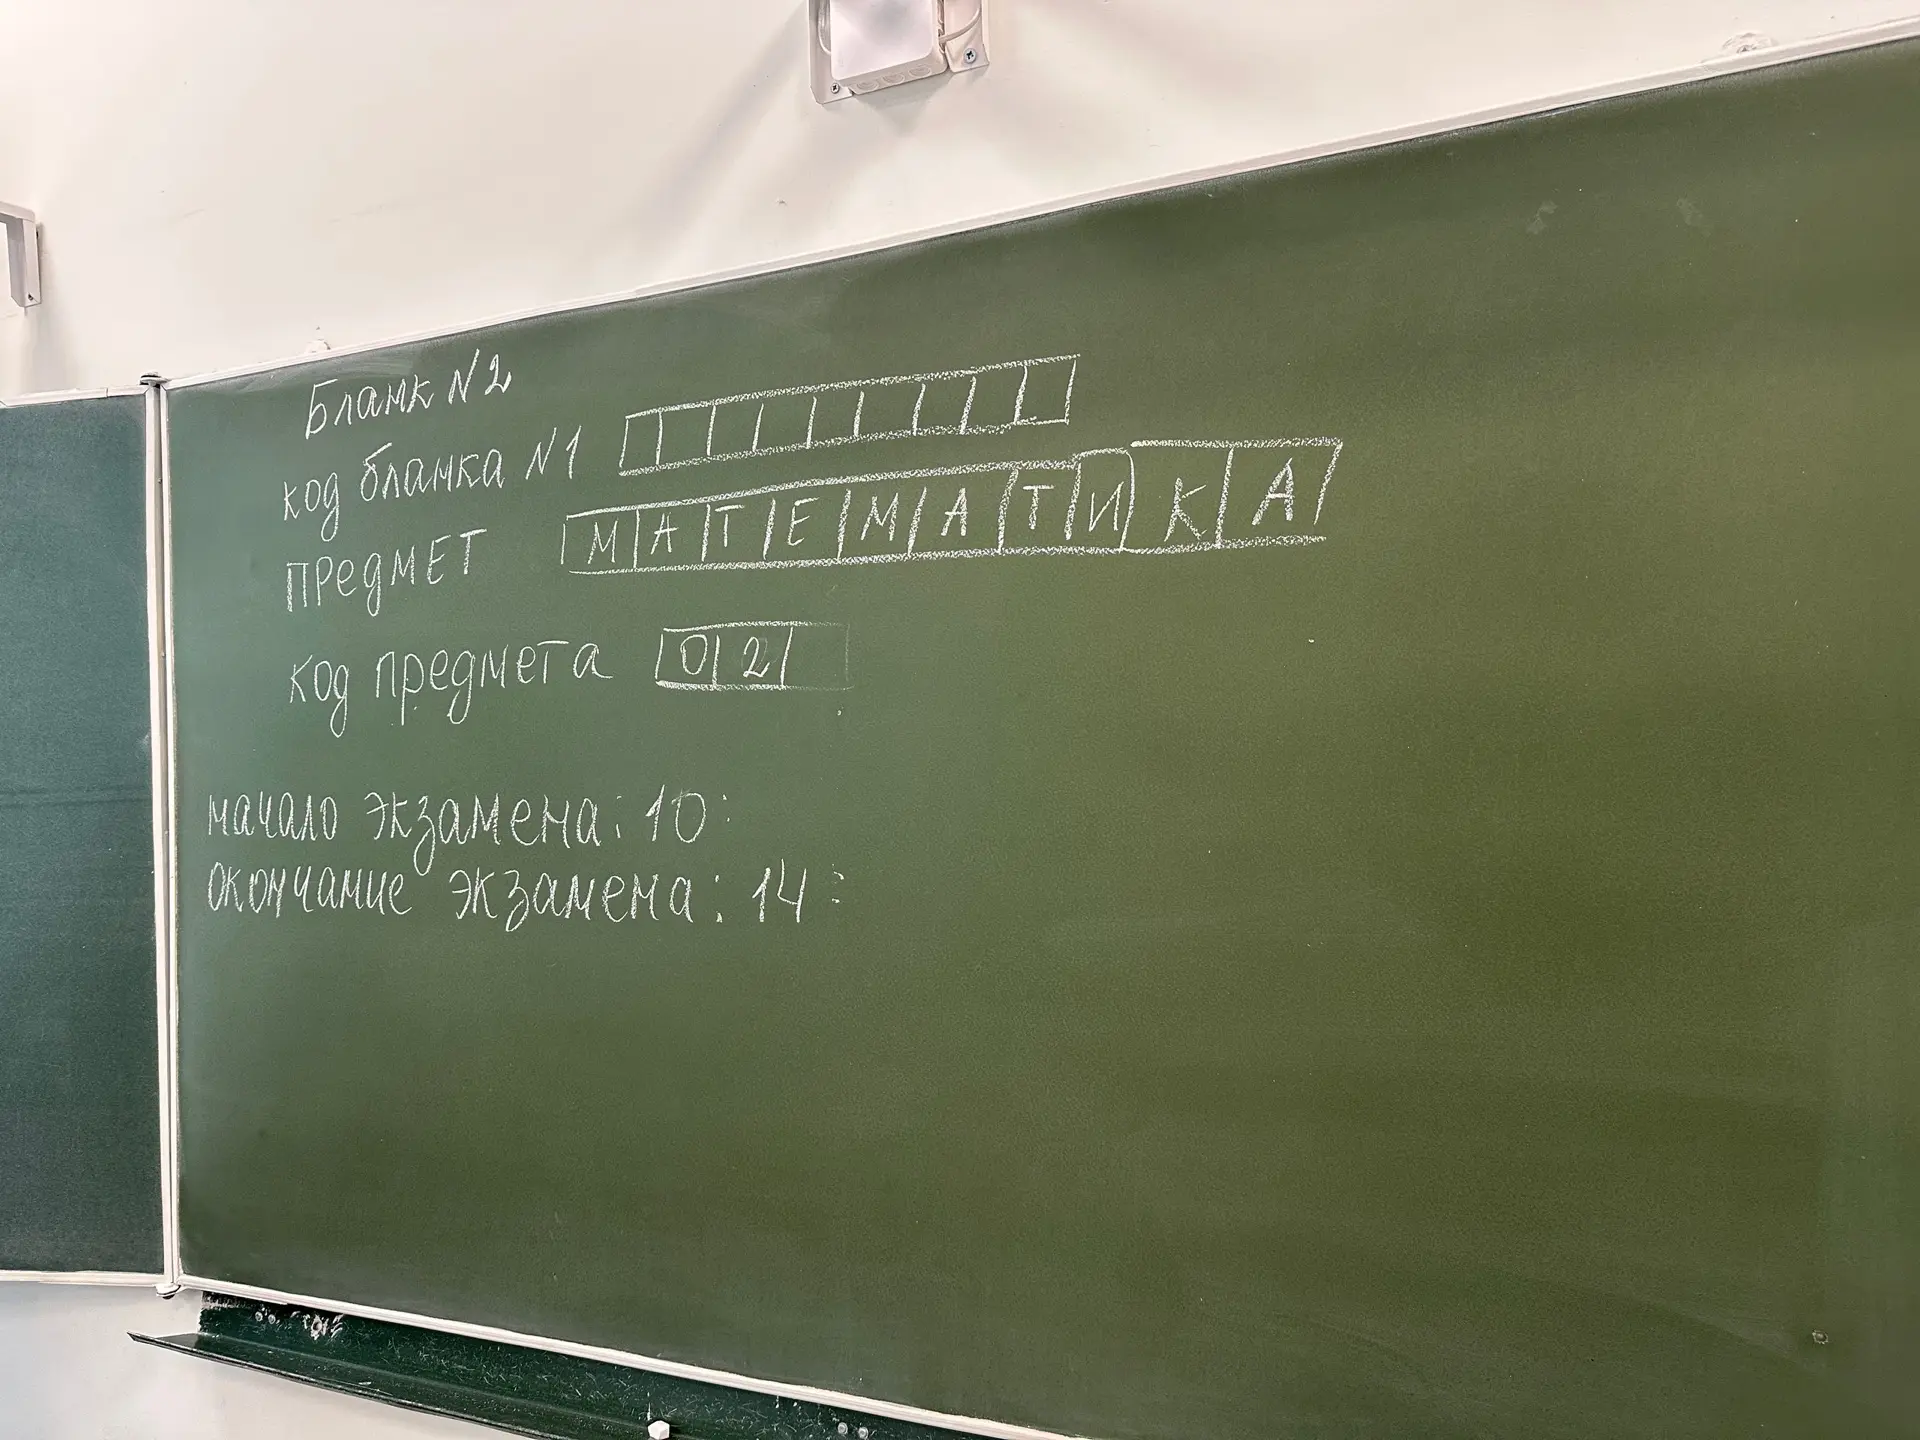 Бланк N2
код бланка N1
ПРЕДМЕТ МАТЕМАТИКА
код предмета 02
начало экзамена: 10:
окончание экзамена: 14: